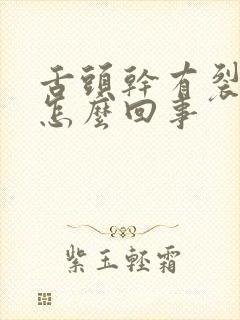 舌頭幹有裂
怎麼回事
紫玉輕霜